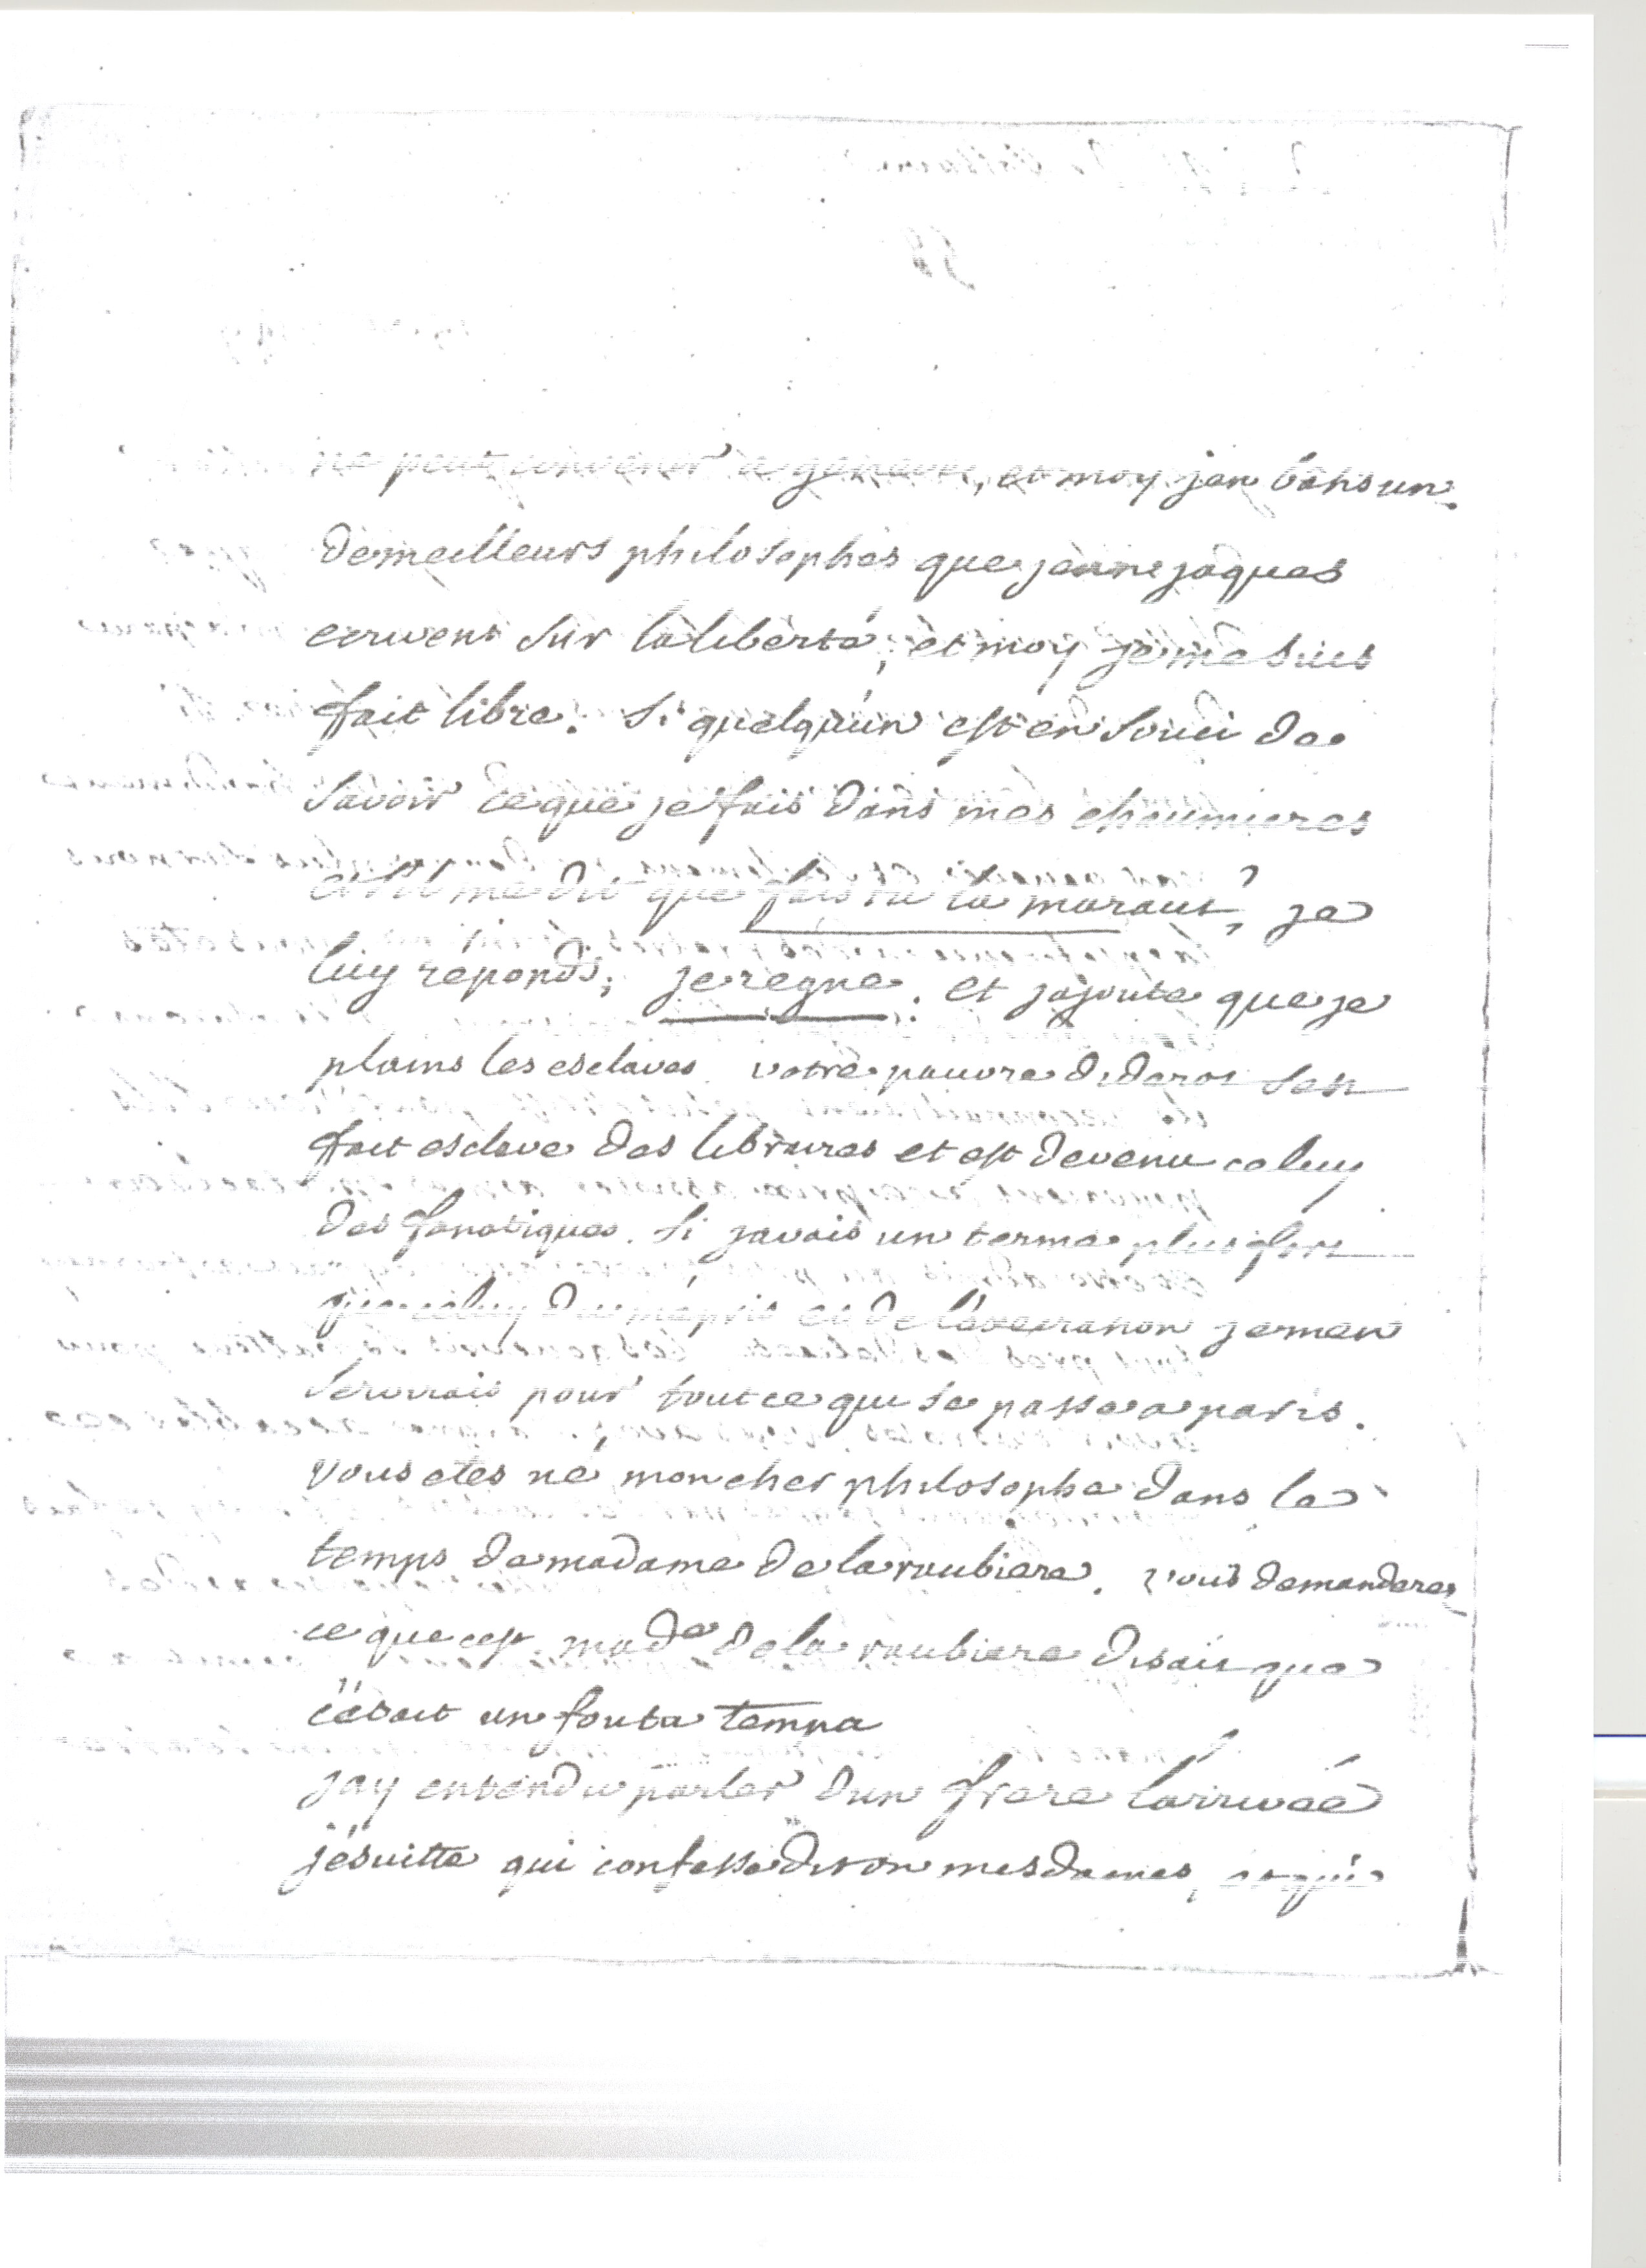 ne peut convenir a geneve, et moy jen bâtis un.
de meilleurs philosophes que jeanne jaques
ecrivent sur la liberté; et moy je me suis
fait libre. si quelqu'un est en souci de
savoir ce que je fais dans mes chaumieres
et s'il me dit que fais tu là maraut?, je
luy réponds; je regne. et jajoute que je
plains les esclaves. votre pauvre diderot sest
fait esclave des libraires et est devenu celuy
des fanatiques. si javais un terme plus fort
que celuy du mépris et de l'execration je men
servirais pour tout ce qui se passe a paris.
vous etes né mon cher philosophe dans le
temps de madame de la raubiere. vous demanderez
ce que cest. made de la raubiere disait que
c'étoit un foutu temps
jay entendu parler dun frere larrivée
jésuitte qui confesse diton mesdames, et qui